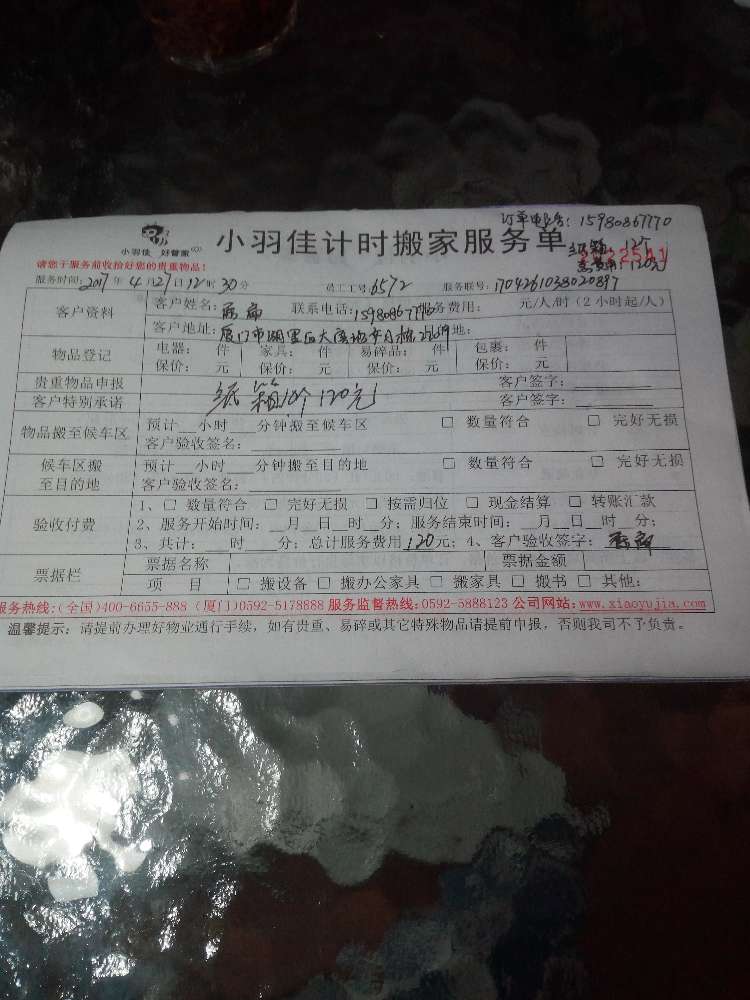 订单电话：15980867770
小羽佳 好管家
小羽佳计时搬家服务单
120元
请您于服务前收拾好您的贵重物品！
服务时间：2017年4月27日12时30分 员工工号：6572 服务联号：1704261038020897
客户资料 客户姓名： 联系电话： 服务费用： 元/人/时（2小时起/人）
客户地址：厦门市湖里区 地：
物品登记 电器： 件 家具： 件 易碎品： 件 包裹： 件
保价： 元 保价： 元 保价： 元 保价： 元
贵重物品申报 客户签字：
客户特别承诺 纸箱 个120元 客户签字：
物品搬至候车区 预计 小时 分钟搬至候车区 □ 数量符合 □ 完好无损
客户验收签名：
候车区搬至目的地 预计 小时 分钟搬至目的地 □ 数量符合 □ 完好无损
客户验收签名：
验收付费 1、□ 数量符合 □ 完好无损 □ 按需归位 □ 现金结算 □ 转账汇款
2、服务开始时间： 月 日 时 分；服务结束时间： 月 日 时 分；
3、共计： 时 分；总计服务费用120元；4、客户验收签字：
票据栏 票据名称 票据金额
项 目 □ 搬设备 □ 搬办公家具 □ 搬家具 □ 搬书 □ 其他：
服务热线：(全国)400-6655-888 (厦门)0592-5178888 服务监督热线：0592-5888123 公司网站：www.xiaoyujia.com
温馨提示：请提前办理好物业通行手续，如有贵重、易碎或其它特殊物品请提前申报，否则我司不予负责。